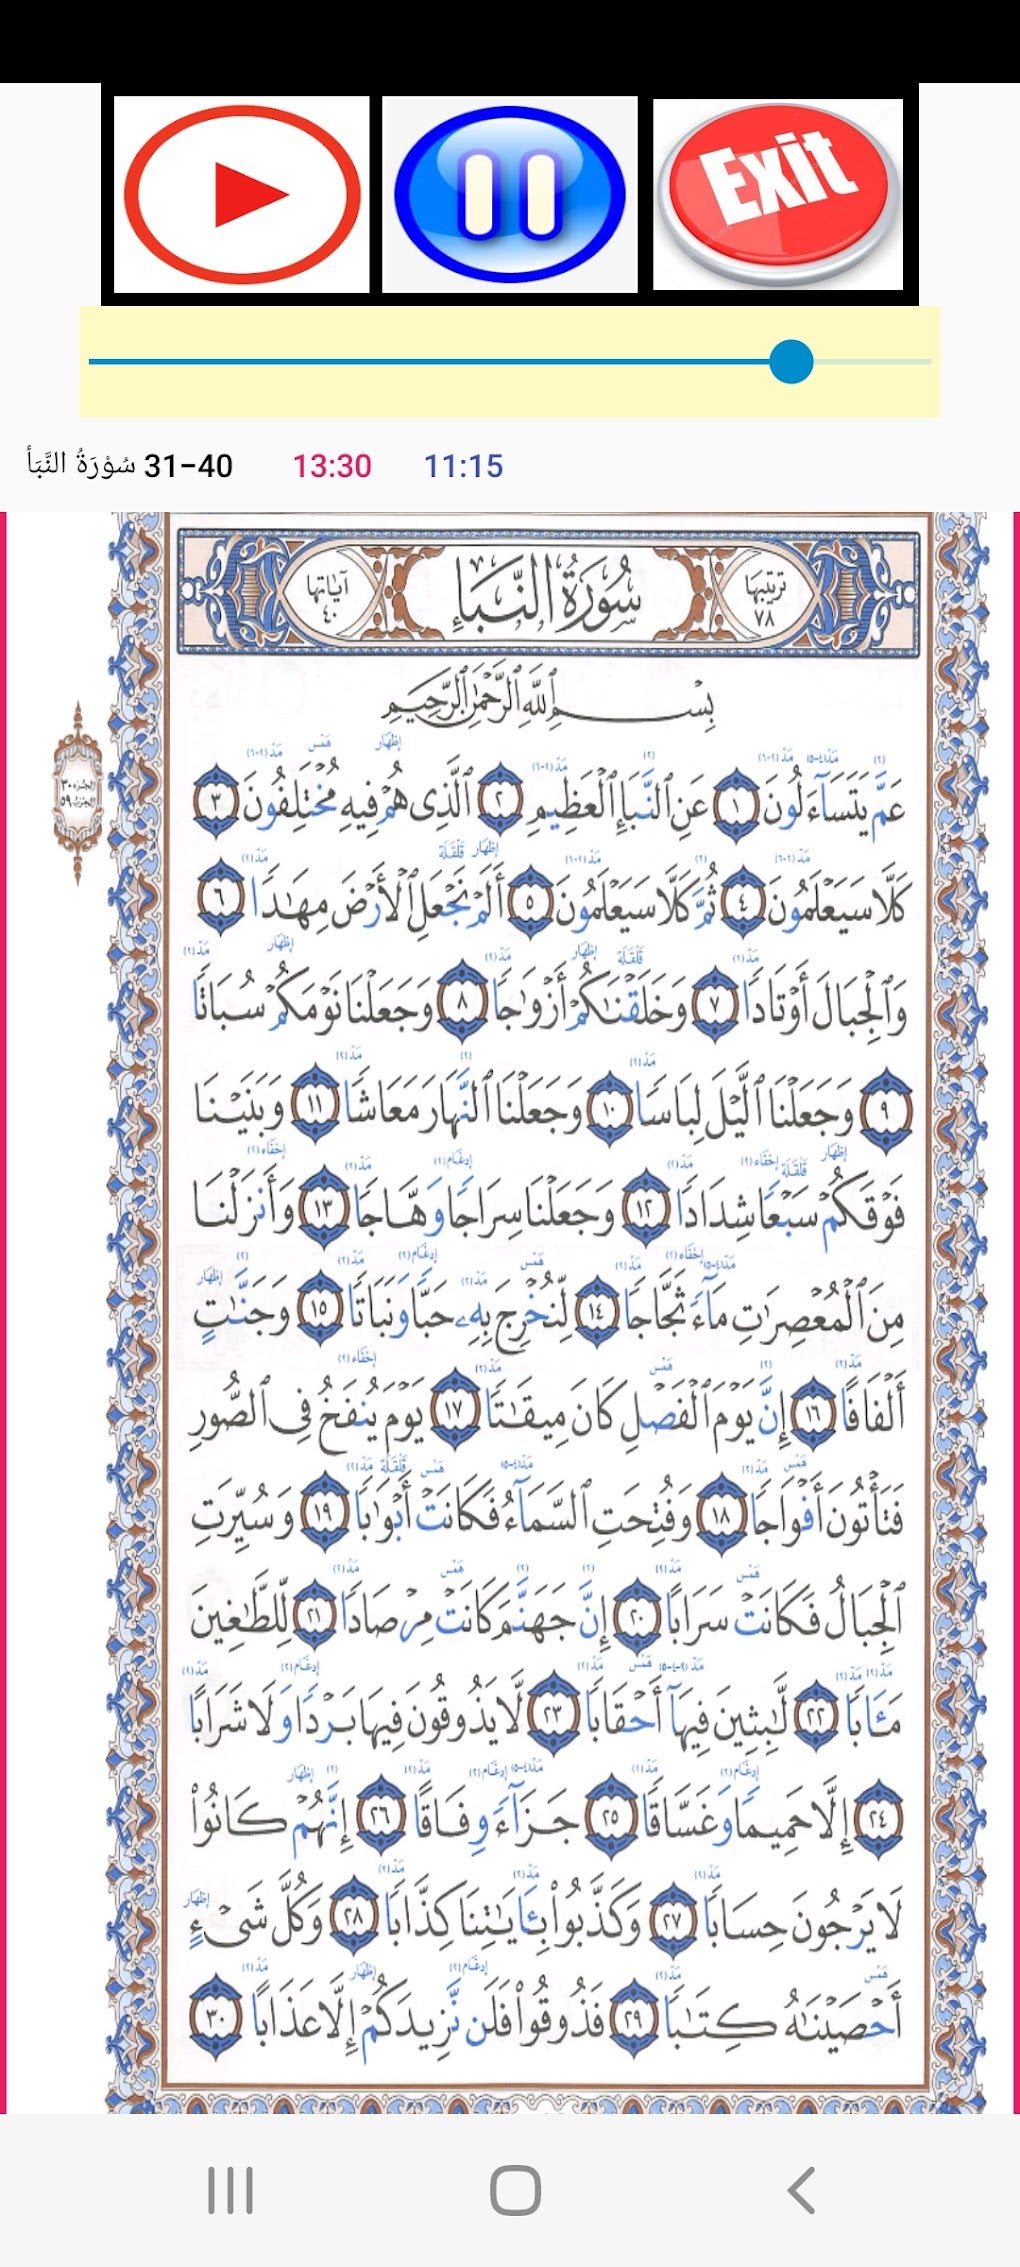 Exit
سُوْرَةُ النَّبَأ 31-40 13:30 11:15
ترتيبها ٧٨ سُورَةُ النَّبَإِ آياتها ٤٠
بِسْمِ ٱللَّهِ ٱلرَّحْمَٰنِ ٱلرَّحِيمِ
عَمَّ يَتَسَآءَلُونَ ١ عَنِ ٱلنَّبَإِ ٱلْعَظِيمِ ٢ ٱلَّذِى هُمْ فِيهِ مُخْتَلِفُونَ ٣
كَلَّا سَيَعْلَمُونَ ٤ ثُمَّ كَلَّا سَيَعْلَمُونَ ٥ أَلَمْ نَجْعَلِ ٱلْأَرْضَ مِهَٰدًا ٦
وَٱلْجِبَالَ أَوْتَادًا ٧ وَخَلَقْنَٰكُمْ أَزْوَٰجًا ٨ وَجَعَلْنَا نَوْمَكُمْ سُبَاتًا
٩ وَجَعَلْنَا ٱلَّيْلَ لِبَاسًا ١٠ وَجَعَلْنَا ٱلنَّهَارَ مَعَاشًا ١١ وَبَنَيْنَا
فَوْقَكُمْ سَبْعًا شِدَادًا ١٢ وَجَعَلْنَا سِرَاجًا وَهَّاجًا ١٣ وَأَنزَلْنَا
مِنَ ٱلْمُعْصِرَٰتِ مَآءً ثَجَّاجًا ١٤ لِّنُخْرِجَ بِهِۦ حَبًّا وَنَبَاتًا ١٥ وَجَنَّٰتٍ
أَلْفَافًا ١٦ إِنَّ يَوْمَ ٱلْفَصْلِ كَانَ مِيقَٰتًا ١٧ يَوْمَ يُنفَخُ فِى ٱلصُّورِ
فَتَأْتُونَ أَفْوَاجًا ١٨ وَفُتِحَتِ ٱلسَّمَآءُ فَكَانَتْ أَبْوَٰبًا ١٩ وَسُيِّرَتِ
ٱلْجِبَالُ فَكَانَتْ سَرَابًا ٢٠ إِنَّ جَهَنَّمَ كَانَتْ مِرْصَادًا ٢١ لِّلطَّٰغِينَ
مَـَٔابًا ٢٢ لَّٰبِثِينَ فِيهَآ أَحْقَابًا ٢٣ لَّا يَذُوقُونَ فِيهَا بَرْدًا وَلَا شَرَابًا
٢٤ إِلَّا حَمِيمًا وَغَسَّاقًا ٢٥ جَزَآءً وِفَاقًا ٢٦ إِنَّهُمْ كَانُوا۟
لَا يَرْجُونَ حِسَابًا ٢٧ وَكَذَّبُوا۟ بِـَٔايَٰتِنَا كِذَّابًا ٢٨ وَكُلَّ شَىْءٍ
أَحْصَيْنَٰهُ كِتَٰبًا ٢٩ فَذُوقُوا۟ فَلَن نَّزِيدَكُمْ إِلَّا عَذَابًا ٣٠